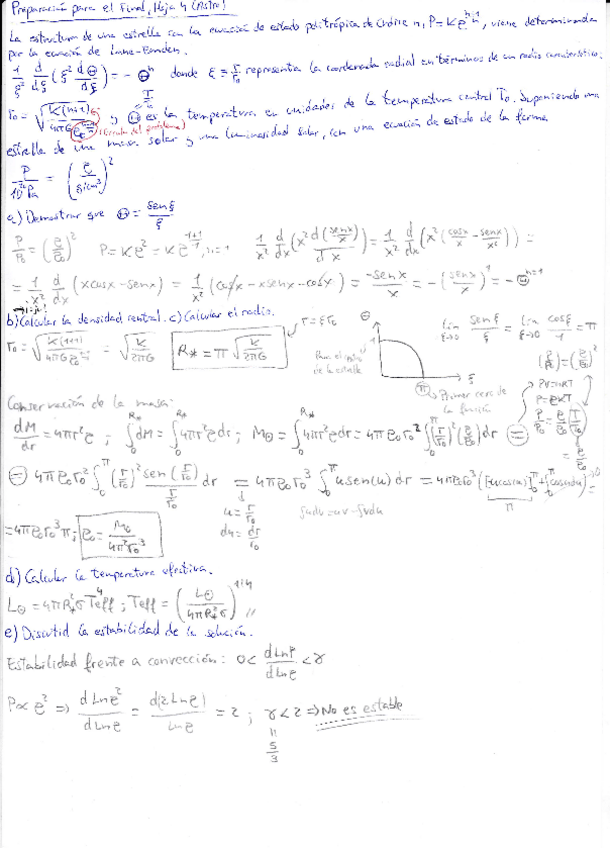 Preparación para el Final, Hoja 4 (Astro)
La estructura de una estrella con la ecuación de estado politrópica de índice n, P=Kρ^{(n+1)/n}, viene determinada
por la ecuación de Lane-Emden.
1/ξ² d/dξ (ξ² dΘ/dξ) = -Θⁿ donde ξ = r/r₀ representa la coordenada radial en términos de un radio característico.
y Θ es la temperatura en unidades de la temperatura central T₀. Suponiendo una
(Errata del problema)
estrella de una masa solar y una luminosidad solar, con una ecuación de estado de la forma
a) Demostrar que Θ = senξ/ξ
P/P₀ = (ρ/ρ₀)² P=Kρ² = Kρ^{(1+1)/1}, n=1 1/x² d/dx (x² d(senx/x)/dx) = 1/x² d/dx (x² (cosx/x - senx/x²)) =
= 1/x² d/dx (xcosx - senx) = 1/x² (cosx - xsenx - cosx) = -senx/x = -(senx/x)¹ = -Θ^{n=1}
b) Calcular la densidad central. c) Calcular el radio.
r₀ = √(K(1+1)/4πG) = √(K/2πG) R* = π√(K/2πG) r=ξr₀
Primer cero de
la función
Conservación de la masa:
dM/dr = 4πr²ρ ; ∫₀^{R*} dM = ∫₀^{R*} 4πr²ρdr ; M⊙ = ∫₀^{R*} 4πr²ρdr = 4πρ₀r₀² ∫₀^π (r/r₀)² (ρ/ρ₀) dr =
= 4πρ₀r₀² ∫₀^π (r/r₀)² sen(r/r₀)/(r/r₀) dr = 4πρ₀r₀³ ∫₀^π usen(u)du = 4πρ₀r₀³ ([-ucosu]₀^π + ∫₀^π cosudu) =
u = r/r₀ ∫udv=uv-∫vdu
du = dr/r₀
= 4πρ₀r₀³π ; ρ₀ = M⊙/4π²r₀³
d) Calcular la temperatura efectiva.
L⊙ = 4πR*²σTeff⁴ ; Teff = (L⊙/4πR*²σ)^{1/4}
e) Discutid la estabilidad de la solución.
Estabilidad frente a convección: 0 < dLnP/dLnρ < γ
P∝ρ² ⇒ dLnρ²/dLnρ = d(2Lnρ)/Lnρ = 2 ; γ<2 ⇒ No es estable
5/3